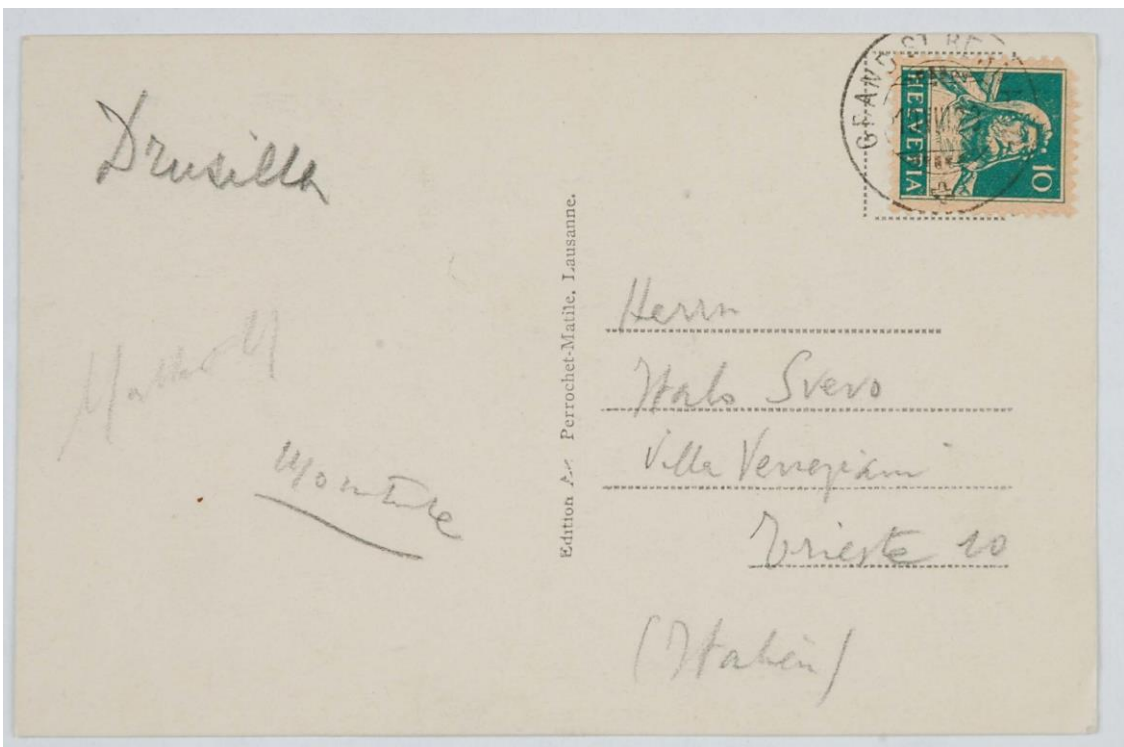 Drusilla
Montale
Edition Art Perrochet-Matile, Lausanne.
GRAND ST BE
HELVETIA
10
Herrn
Italo Svevo
Villa Veneziani
Trieste 10
(Italien)